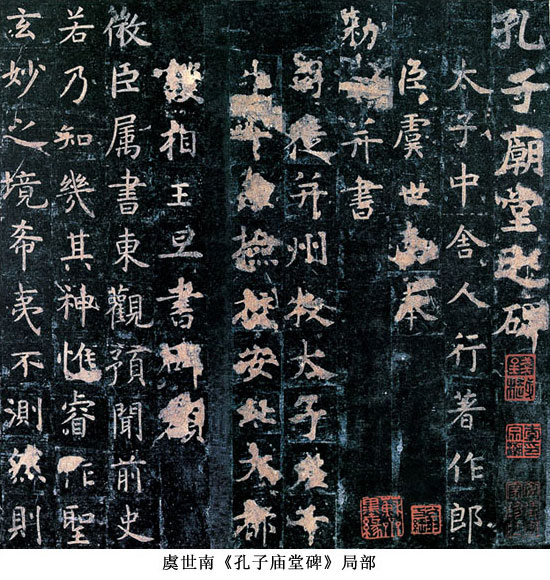 孔子廟堂之碑
太子中舍人行著作郎
臣虞世南奉
勅撰并書
司徒并州牧太子左千
牛率兼檢校安北大都
護相王旦書碑額
微臣属書東觀預聞前史
若乃知幾其神惟睿作聖
玄妙之境希夷不測然則
虞世南《孔子庙堂碑》局部